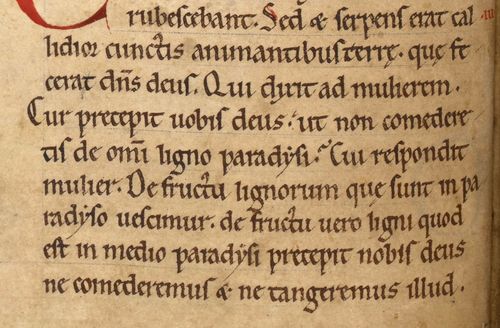 rubescebant. Sed & serpens erat cal
lidior cunctis animantibus terrę. quę fe
cerat dn̄s deus. Qui dixit ad mulierem.
Cur precepit uobis deus. ut non comedere
tis de omī ligno paradysi? Cui respondit
mulier. De fructu lignorum quę sunt in pa
radyso uescimur. de fructu uero ligni quod
est in medio paradysi precepit nobis deus
ne comederemus & ne tangeremus illud.